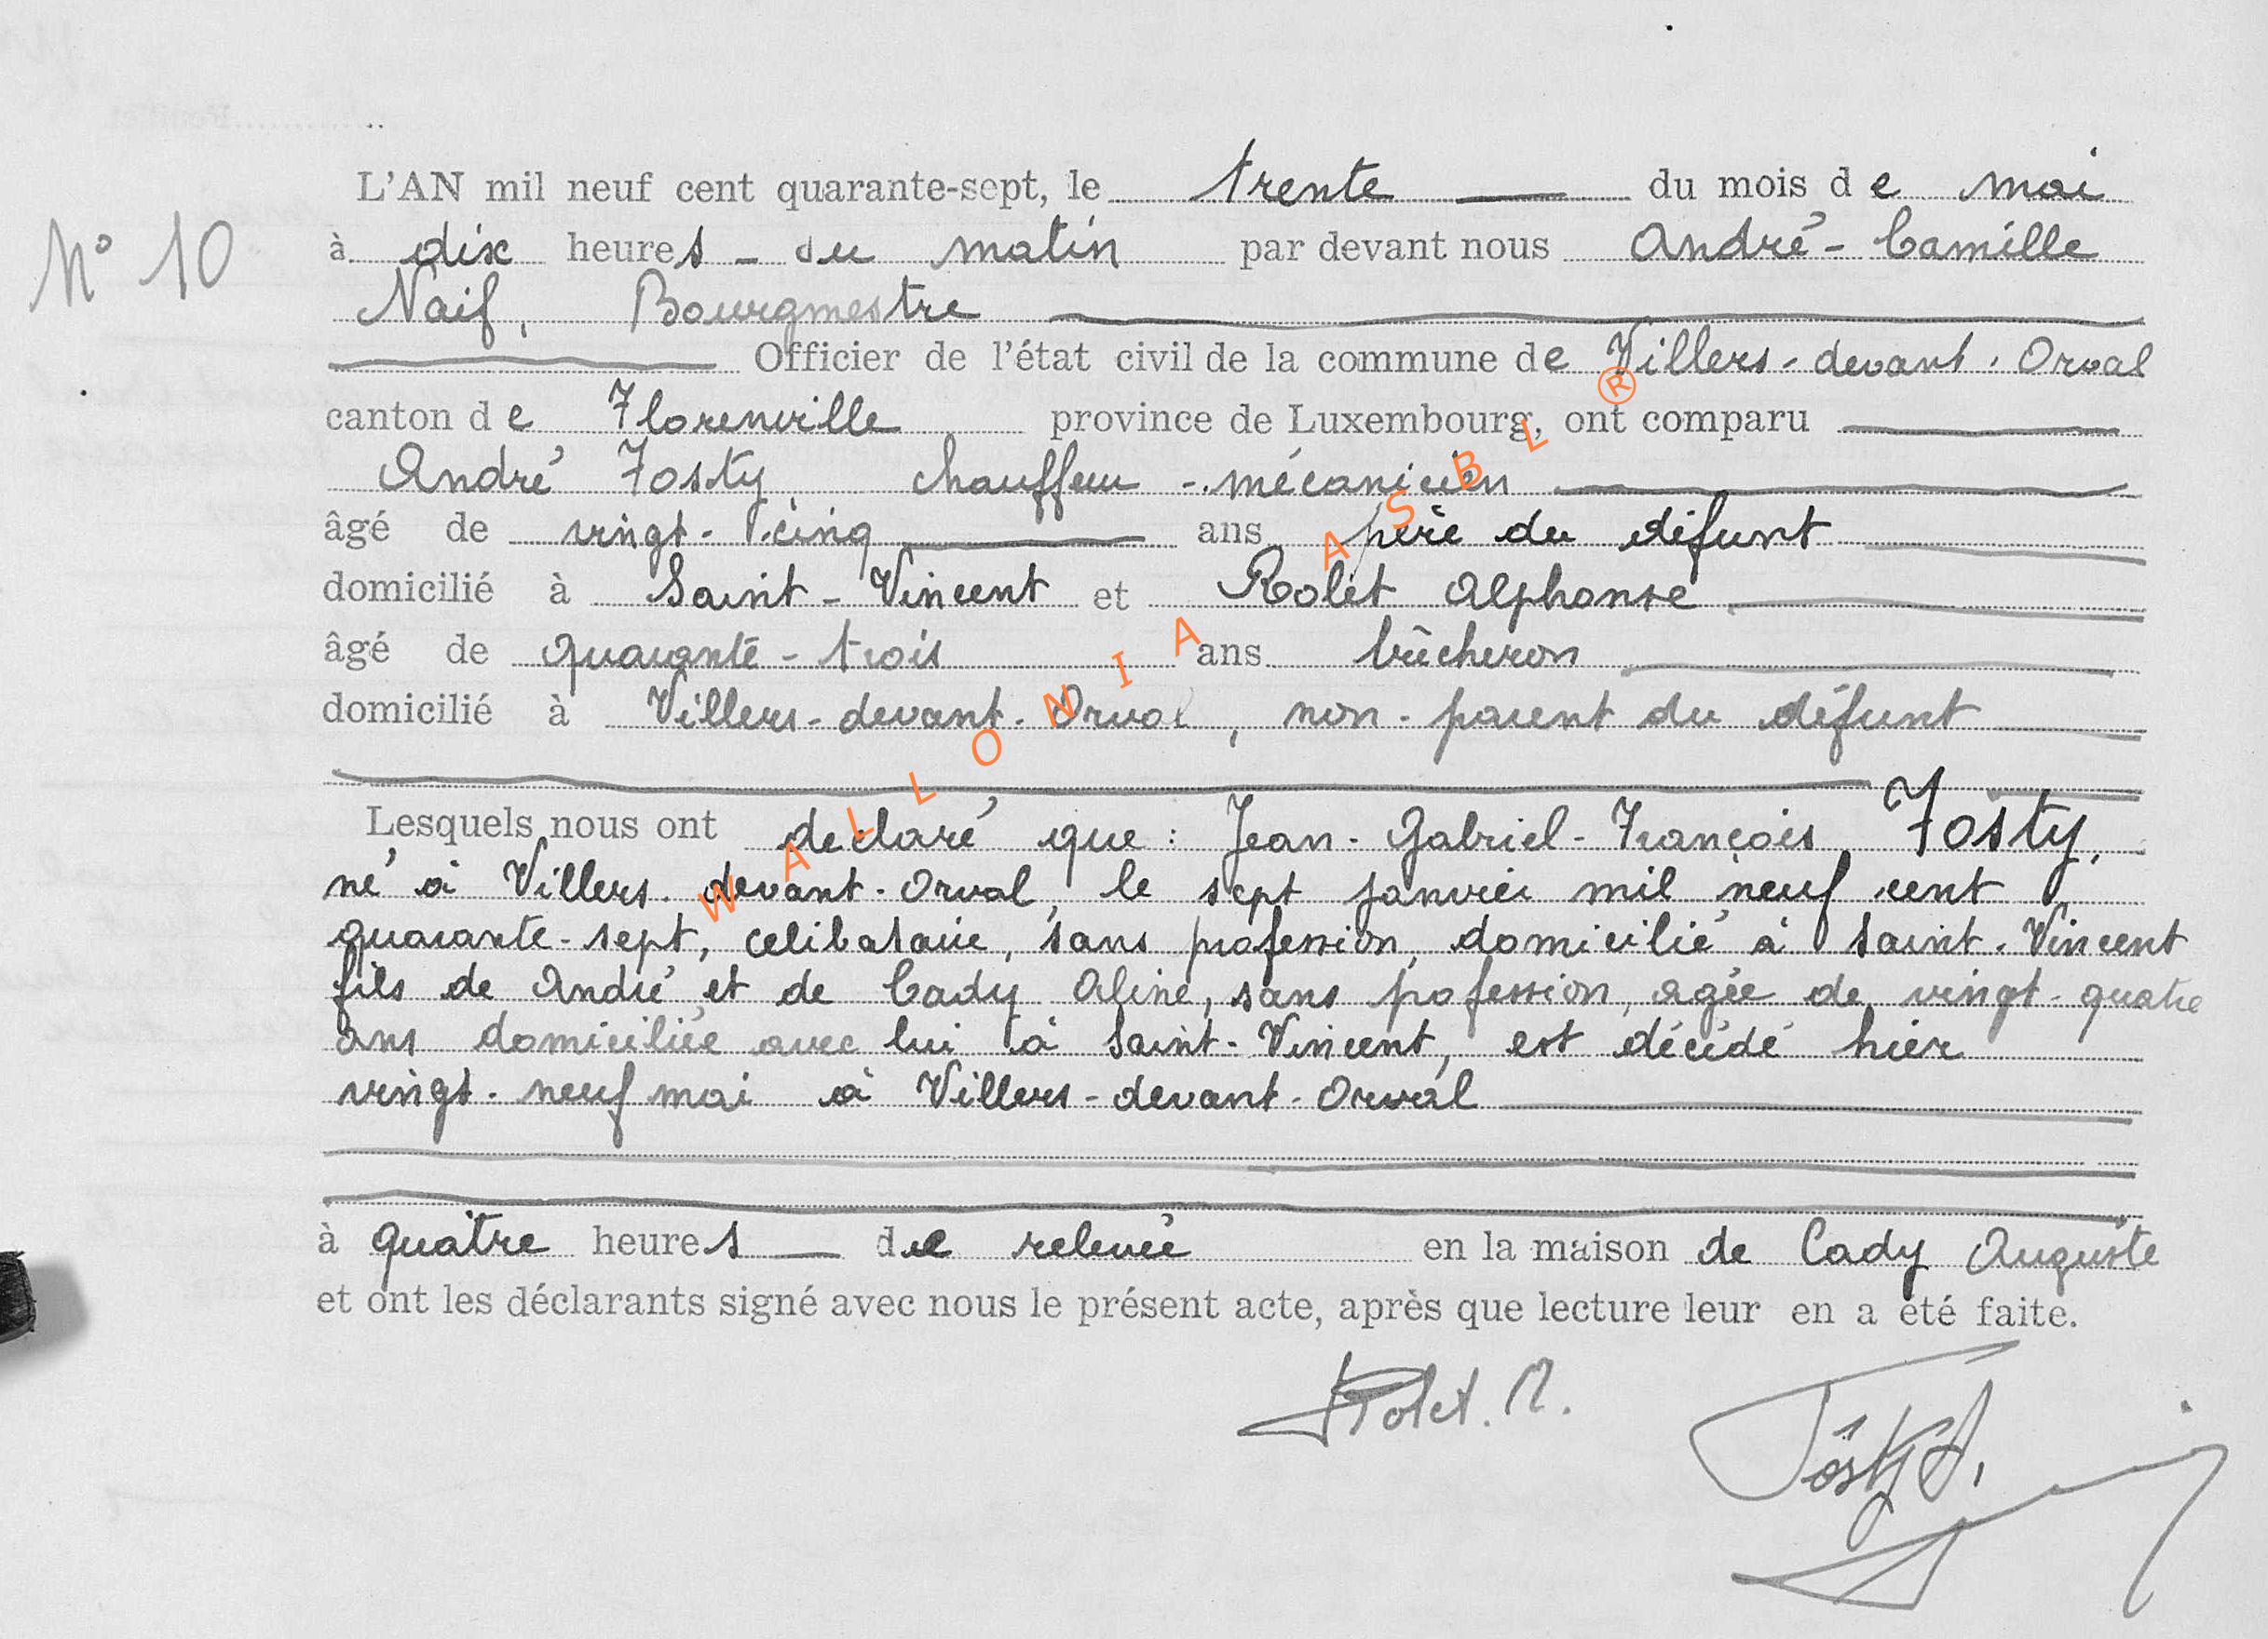 N° 10
L'AN mil neuf cent quarante-sept, le trente du mois de mai
à dix heures - du matin par devant nous André - Camille
Naif, Bourgmestre
Officier de l'état civil de la commune de Villers-devant-Orval
canton de Florenville province de Luxembourg, ont comparu
André Fosty, chauffeur - mécanicien
âgé de vingt-cinq ans père du défunt
domicilié à Saint-Vincent et Rolet Alphonse
âgé de quarante-trois ans bûcheron
domicilié à Villers-devant-Orval, non-parent du défunt
Lesquels nous ont declaré que: Jean-Gabriel-François Fosty,
né à Villers-devant-Orval, le sept janvier mil neuf cent
quarante-sept, celibataire, sans profession, domicilié à Saint-Vincent
fils de André et de Cady Aline, sans pofession, agée de vingt-quatre
ans domiciliée avec lui à Saint-Vincent, est décédé hier
vingt-neuf mai à Villers-devant-Orval
à quatre heures de relevée en la maison de Cady Auguste
et ont les déclarants signé avec nous le présent acte, après que lecture leur en a été faite.
Rolet. A.
Fosty A.
WALLONIA ASBL ®